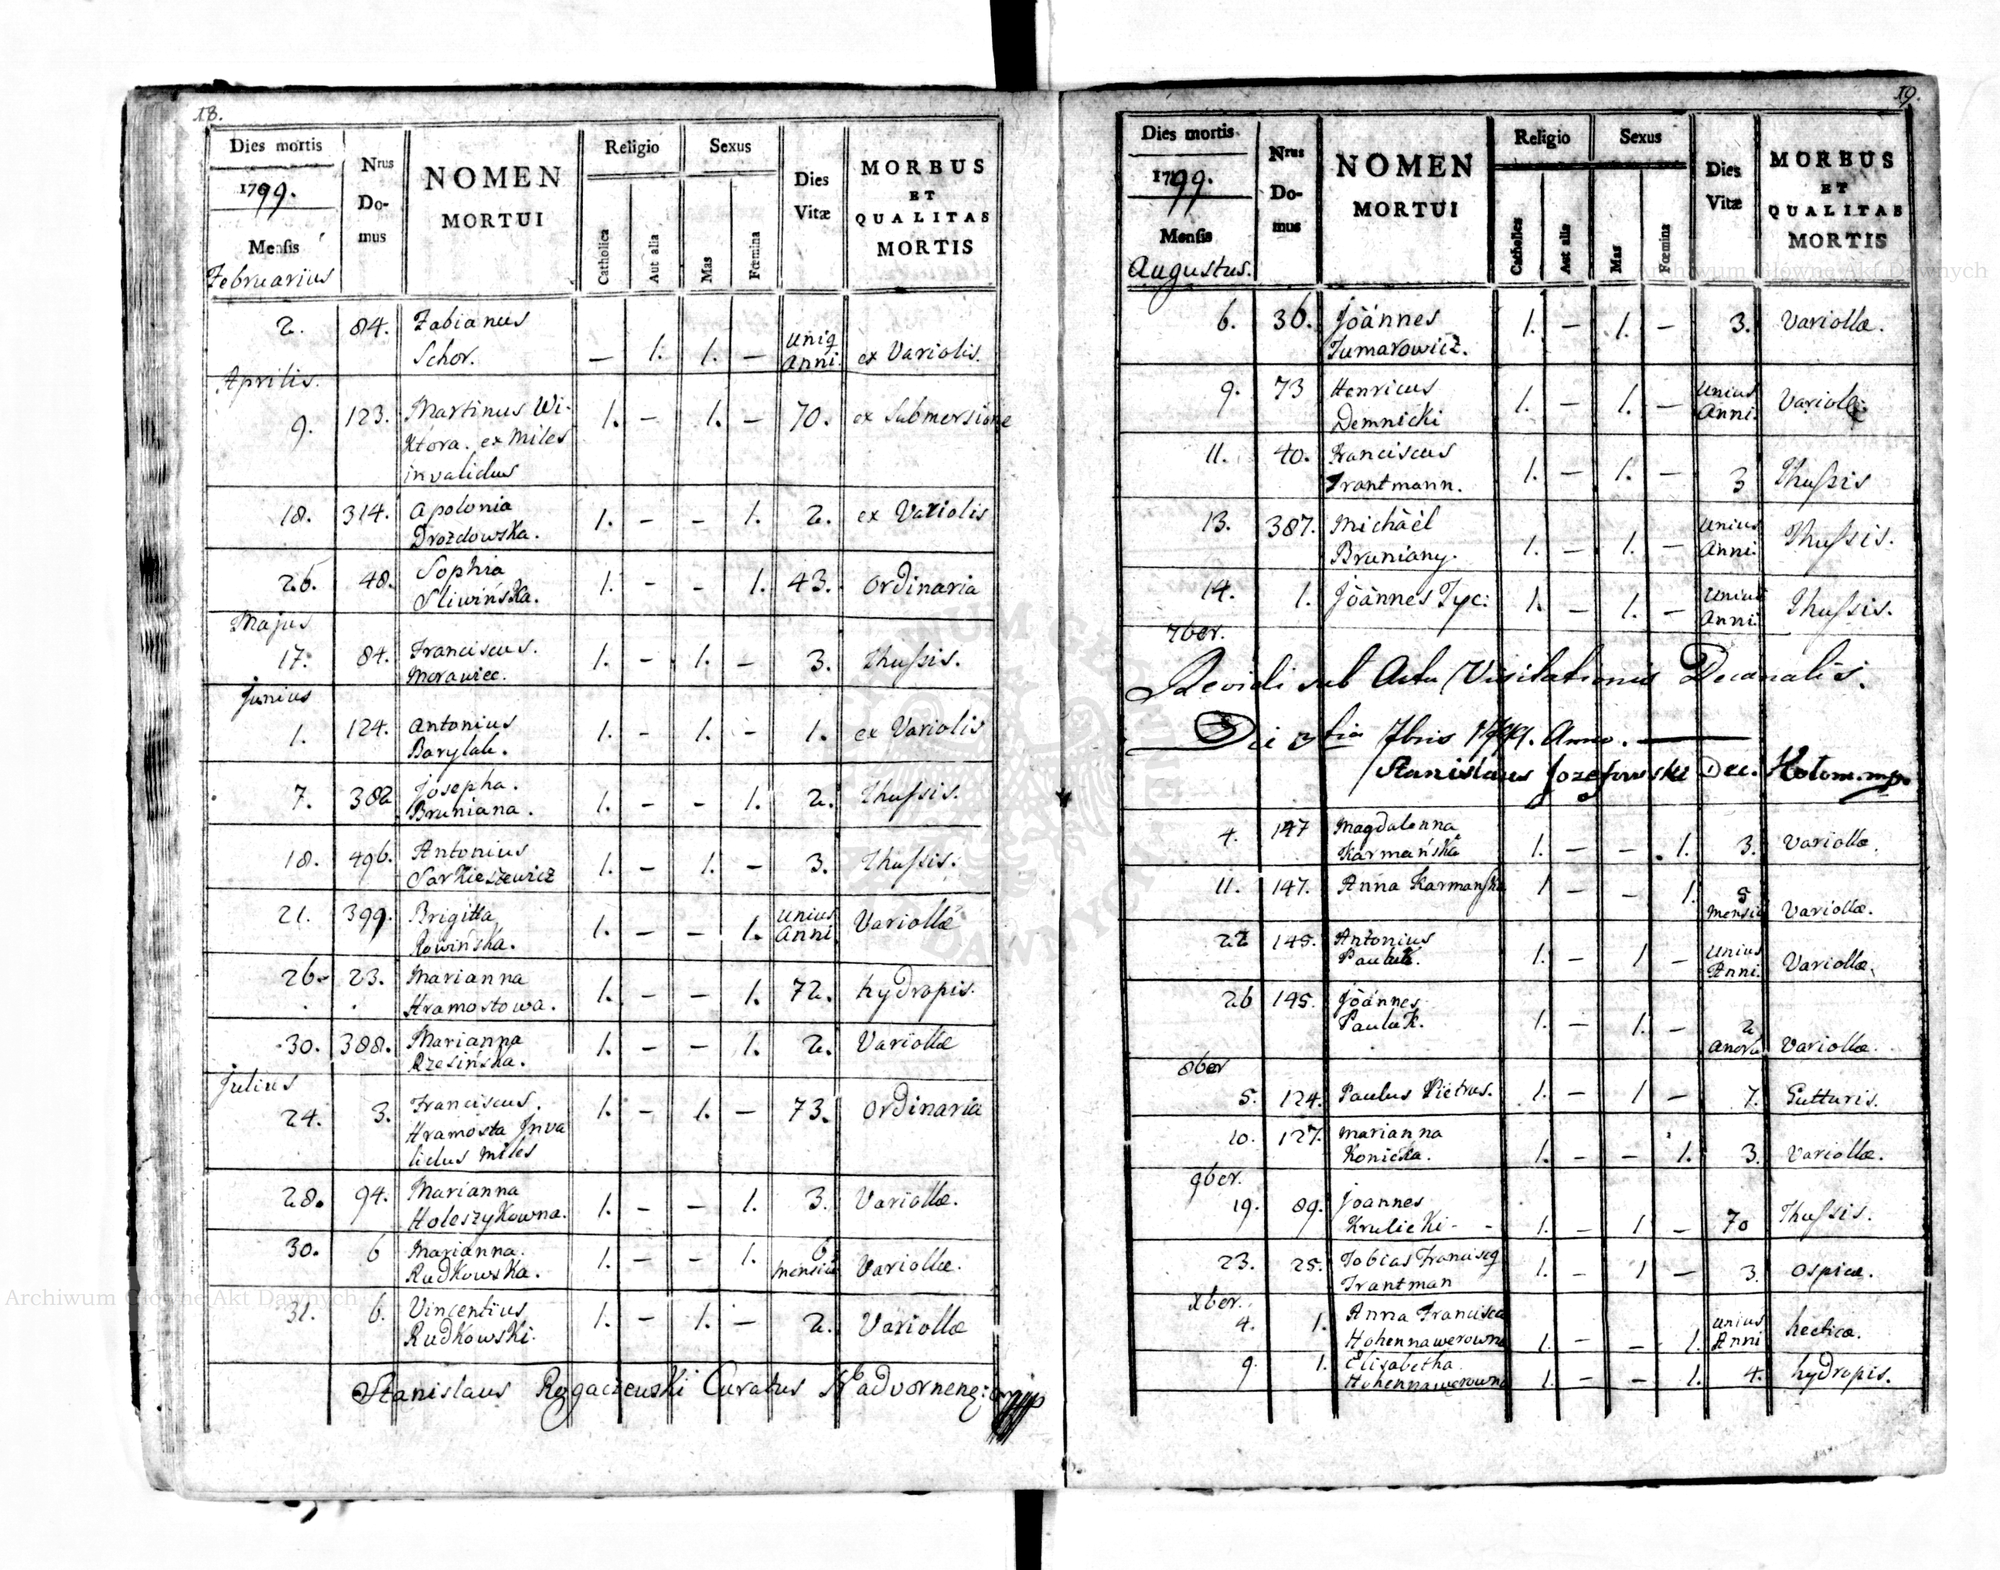 18.
Dies mortis
1799.
Mensis
Februarius
Nrus
Do-
mus
NOMEN
MORTUI
Religio
Catholica
Aut alia
Sexus
Mas
Fœmina
Dies
Vitæ
MORBUS
ET
QUALITAS
MORTIS
2. 84. Fabianus
Schor. — 1. 1. — Uniq
Anni ex Variolis.
Aprilis.
9. 123. Martinus Wi-
Ktora. ex Miles
invalidus 1. — 1. — 70. ex Submersione
18. 314. Apolonia
Drozdowska. 1. — — 1. 2. ex Variolis
26. 48. Sophia
Sliwińska. 1. — — 1. 43. Ordinaria
Majus
17. 84. Franciscus.
Morawiec. 1. — 1. — 3. Thussis.
Junius
1. 124. Antonius
Barylak. 1. — 1. — 1. ex Variolis
7. 382 Josepha.
Bruniana. 1. — — 1. 2. Thussis.
18. 496. Antonius
Sarkieszewicz 1. — 1. — 3. Thussis.
21. 399. Brigitta
Rowińska. 1. — — 1. Unius
Anni Variollæ
26. 23. Marianna
Hramostowa. 1. — — 1. 72. hydropis.
30. 388. Marianna
Rzesińska. 1. — — 1. 2. Variollæ
Julius
24. 3. Franciscus.
Hramosta Inva
lidus miles 1. — 1. — 73. Ordinaria
28. 94. Marianna
Holeszykowna. 1. — — 1. 3. Variollæ.
30. 6 Marianna.
Rudkowska. 1. — — 1. 6
mensiū Variollæ.
31. 6. Vincentius
Rudkowski. 1. — 1. — 2. Variollæ
Stanislaus Curatus
19.
Dies mortis
1799.
Mensis
Augustus.
Nrus
Do-
mus
NOMEN
MORTUI
Religio
Catholica
Aut alia
Sexus
Mas
Fœmina
Dies
Vitæ
MORBUS
ET
QUALITAS
MORTIS
6. 36. Joannes
Tumarowicz. 1. — 1. — 3. Variollæ.
9. 73 Henricus
Demnicki 1. — 1. — Unius
Anni. Variollæ
11. 40. Franciscus
Trantmann. 1. — 1. — 3 Thussis
13. 387. Michaël
Bruniany. 1. — 1. — Unius
Anni. Thussis.
14. 1. Joannes Tyc: 1. — 1. — Unius
Anni. Thussis.
7ber.
Revidi sub Actu Visitationis Decanalis.
Die 3tia 7bris 1799. Anno.
Stanislaus Jozefowski Dec. Kołom. mp.
4. 147 Magdalenna
Karmańska 1. — — 1. 3. Variollæ.
11. 147. Anna Karmanska 1 — — 1. 5
Mensiū Variollæ.
22 145. Antonius
Pauluk. 1. — 1 — Unius
Anni. Variollæ.
26 145. Joannes
Pauluk. 1. — 1. — 2
Anorū Variollæ.
8ber
5. 124. Paulus Pietrus. 1. — 1 — 7. Gutturis.
10. 127. Marianna
Konicka. 1. — — 1. 3. Variollæ.
9ber.
19. 89. Joannes
Krulicki - - 1. — 1 — 70 Thussis.
23. 25. Tobias Franciscq
Trantman 1. — 1 — 3. Ospicæ.
Xber.
4. 1. Anna Francisca
Hohennawerowna 1. — — 1. Unius
Anni hecticæ.
9. 1. Elisabetha
Hohennawerowna 1. — — 1. 4. hydropis.
Archiwum Główne Akt Dawnych
Archiwum Główne Akt Dawnych
ARCHIWUM GŁÓWNE
AKT DAWNYCH